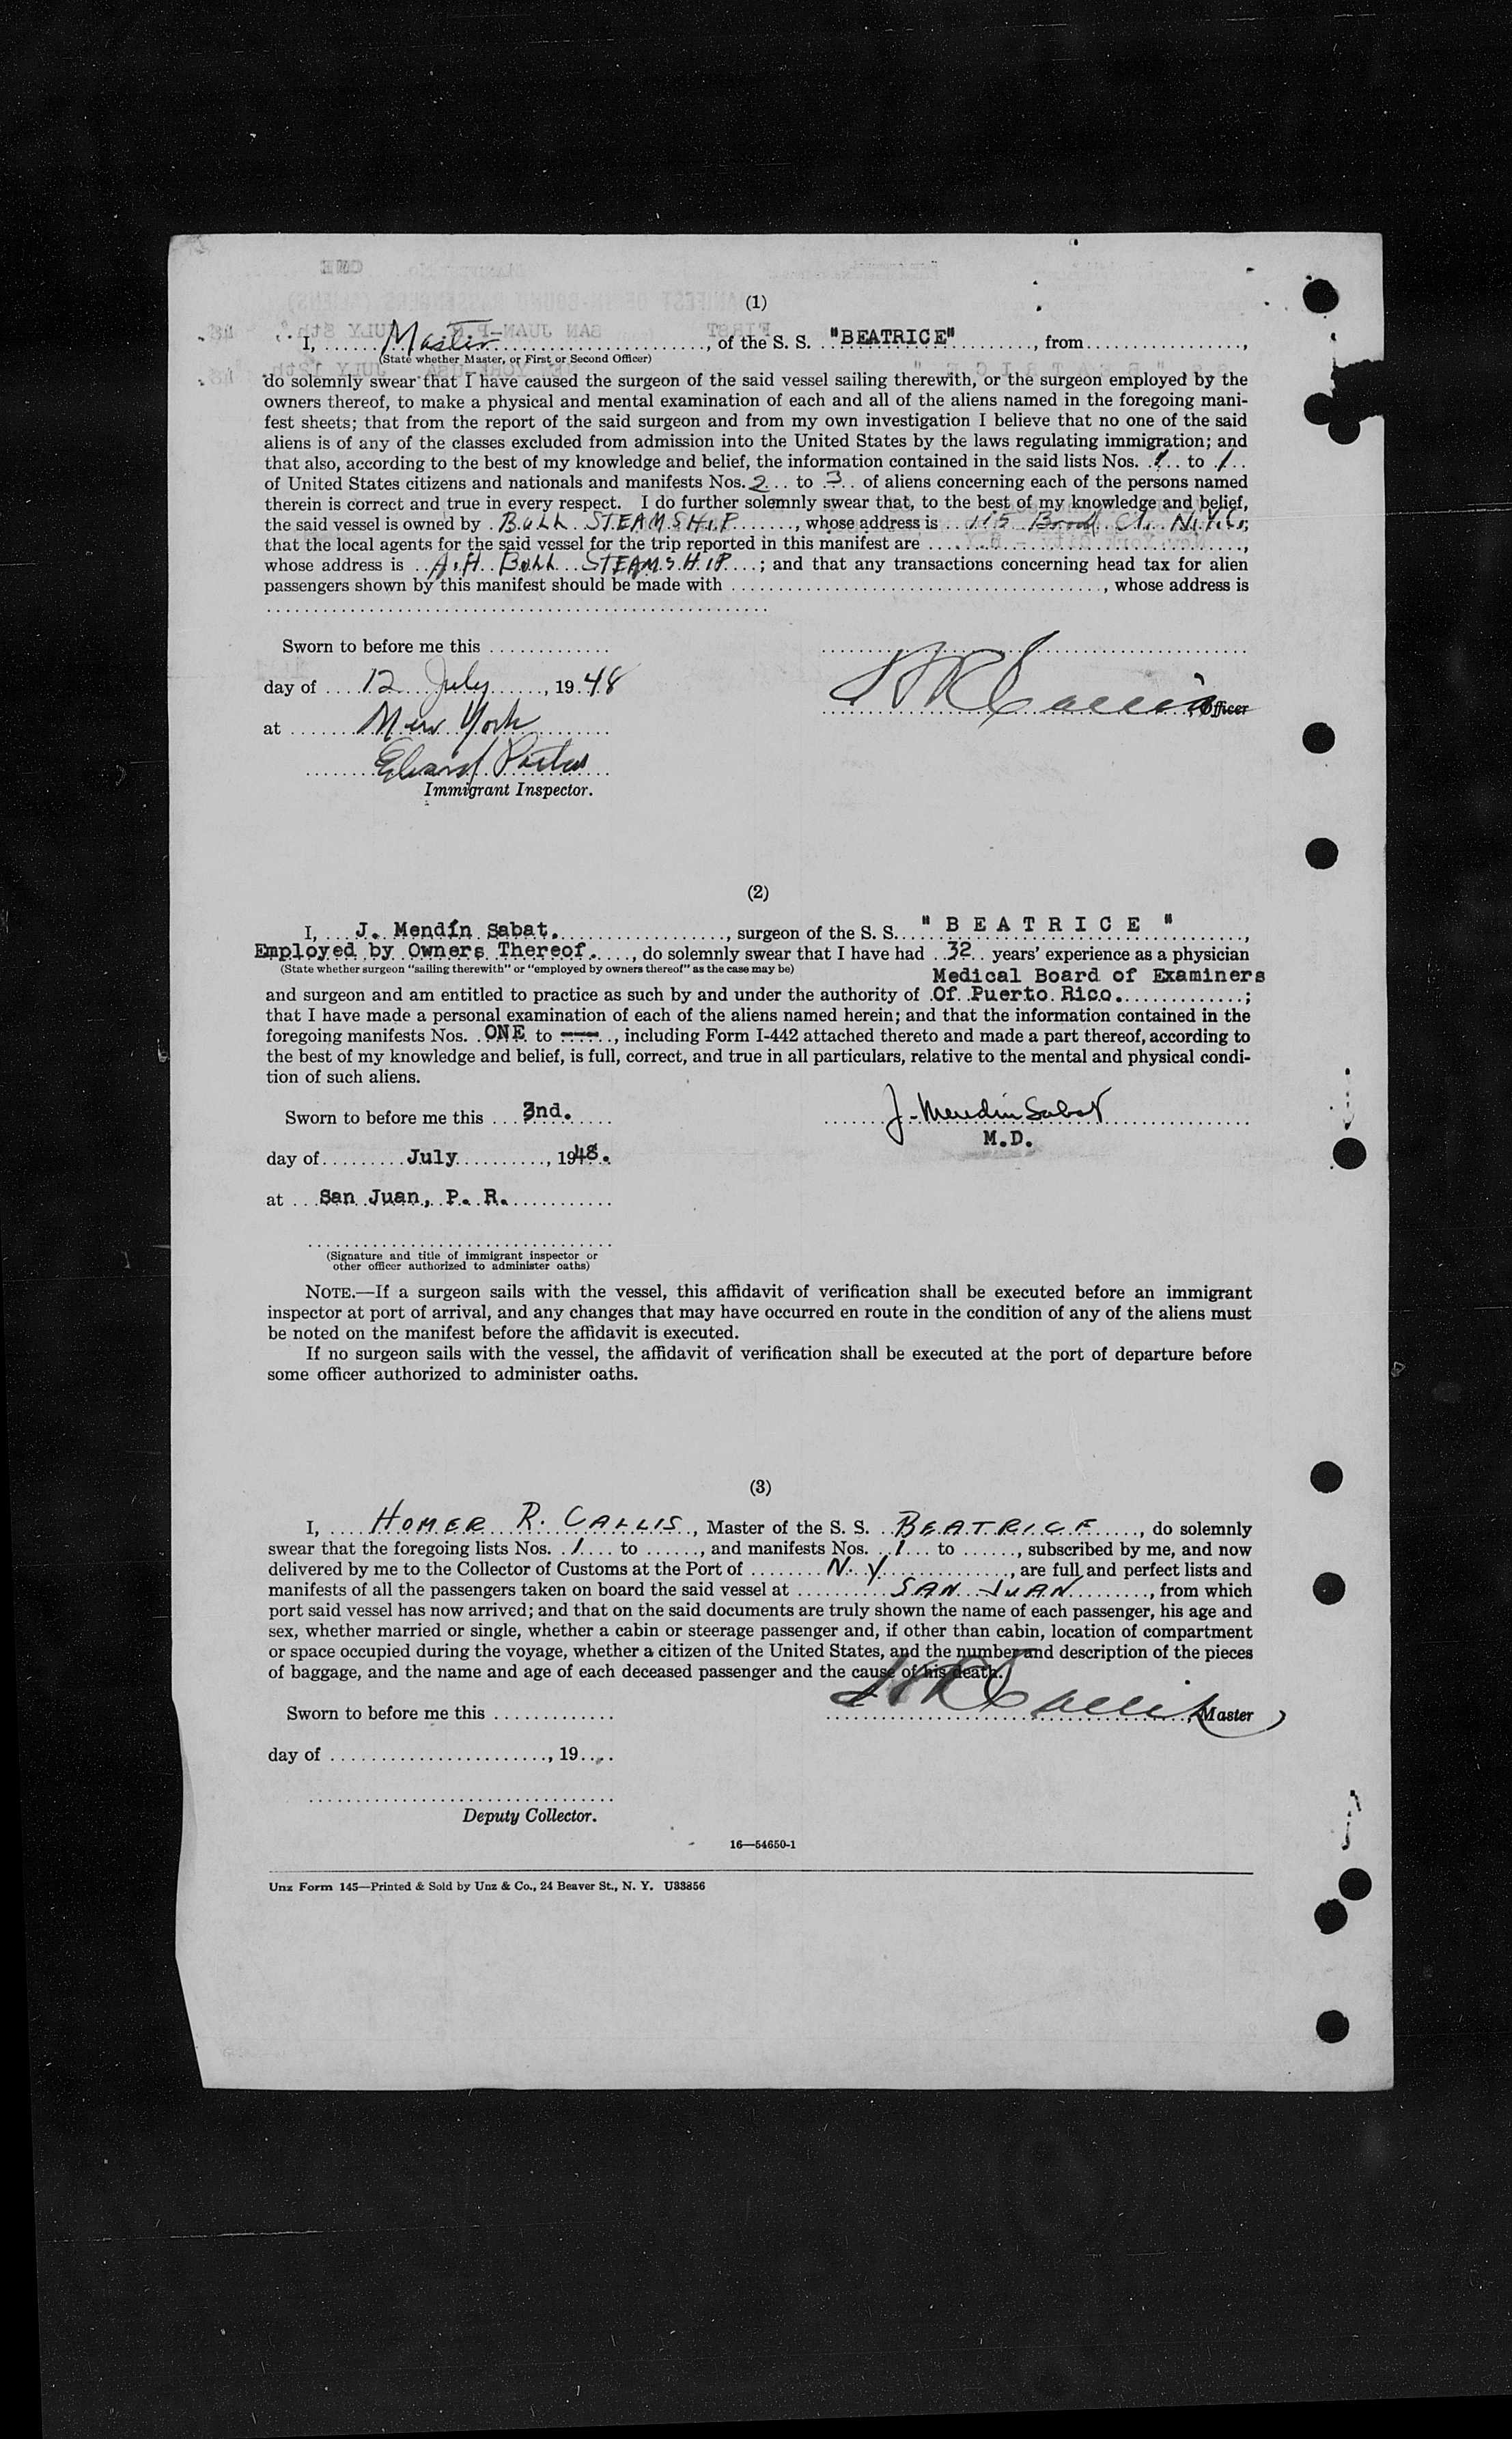 (1)
I, Master, of the S. S. "BEATRICE", from
(State whether Master, or First or Second Officer)
do solemnly swear that I have caused the surgeon of the said vessel sailing therewith, or the surgeon employed by the
owners thereof, to make a physical and mental examination of each and all of the aliens named in the foregoing mani-
fest sheets; that from the report of the said surgeon and from my own investigation I believe that no one of the said
aliens is of any of the classes excluded from admission into the United States by the laws regulating immigration; and
that also, according to the best of my knowledge and belief, the information contained in the said lists Nos. 1 to 1
of United States citizens and nationals and manifests Nos. 2 to 3 of aliens concerning each of the persons named
therein is correct and true in every respect. I do further solemnly swear that, to the best of my knowledge and belief,
the said vessel is owned by Bull STEAMSHIP, whose address is 115 Broad St. N.Y.C.;
that the local agents for the said vessel for the trip reported in this manifest are ,
whose address is A.H. Bull STEAMSHIP; and that any transactions concerning head tax for alien
passengers shown by this manifest should be made with , whose address is
Sworn to before me this
day of 12 July, 1948
H R Callis, Officer
at New York
Immigrant Inspector.
(2)
I, J. Mendín Sabat., surgeon of the S. S. " B E A T R I C E ",
Employed by Owners Thereof., do solemnly swear that I have had 32 years' experience as a physician
(State whether surgeon "sailing therewith" or "employed by owners thereof" as the case may be)
Medical Board of Examiners
and surgeon and am entitled to practice as such by and under the authority of Of Puerto Rico.;
that I have made a personal examination of each of the aliens named herein; and that the information contained in the
foregoing manifests Nos. ONE to ---, including Form I-442 attached thereto and made a part thereof, according to
the best of my knowledge and belief, is full, correct, and true in all particulars, relative to the mental and physical condi-
tion of such aliens.
Sworn to before me this nd.
J. Mendín Sabat
M.D.
day of July, 1948.
at San Juan, P. R.
(Signature and title of immigrant inspector or
other officer authorized to administer oaths)
NOTE.—If a surgeon sails with the vessel, this affidavit of verification shall be executed before an immigrant
inspector at port of arrival, and any changes that may have occurred en route in the condition of any of the aliens must
be noted on the manifest before the affidavit is executed.
If no surgeon sails with the vessel, the affidavit of verification shall be executed at the port of departure before
some officer authorized to administer oaths.
(3)
I, HOMER R. CALLIS, Master of the S. S. BEATRICE, do solemnly
swear that the foregoing lists Nos. 1 to , and manifests Nos. 1 to , subscribed by me, and now
delivered by me to the Collector of Customs at the Port of N. Y, are full and perfect lists and
manifests of all the passengers taken on board the said vessel at SAN JUAN, from which
port said vessel has now arrived; and that on the said documents are truly shown the name of each passenger, his age and
sex, whether married or single, whether a cabin or steerage passenger and, if other than cabin, location of compartment
or space occupied during the voyage, whether a citizen of the United States, and the number and description of the pieces
of baggage, and the name and age of each deceased passenger and the cause of his death.
H R Callis, Master
Sworn to before me this
day of , 19
Deputy Collector.
16—54650-1
Unz Form 145—Printed & Sold by Unz & Co., 24 Beaver St., N. Y. U33856